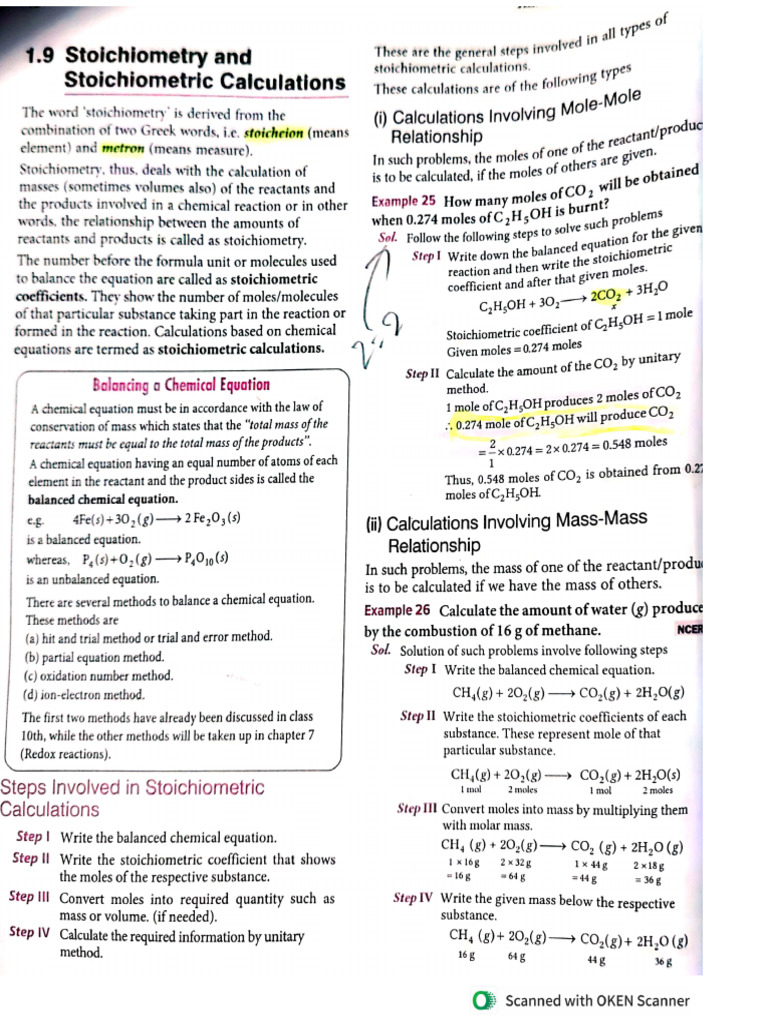 1.9 Stoichiometry and
Stoichiometric Calculations
The word 'stoichiometry' is derived from the
combination of two Greek words, i.e. stoicheion (means
element) and metron (means measure).
Stoichiometry, thus, deals with the calculation of
masses (sometimes volumes also) of the reactants and
the products involved in a chemical reaction or in other
words, the relationship between the amounts of
reactants and products is called as stoichiometry.
The number before the formula unit or molecules used
to balance the equation are called as stoichiometric
coefficients. They show the number of moles/molecules
of that particular substance taking part in the reaction or
formed in the reaction. Calculations based on chemical
equations are termed as stoichiometric calculations.
Balancing a Chemical Equation
A chemical equation must be in accordance with the law of
conservation of mass which states that the "total mass of the
reactants must be equal to the total mass of the products".
A chemical equation having an equal number of atoms of each
element in the reactant and the product sides is called the
balanced chemical equation.
e.g. 4Fe(s)+3O₂(g)⟶2Fe₂O₃(s)
is a balanced equation.
whereas, P₄(s)+O₂(g)⟶P₄O₁₀(s)
is an unbalanced equation.
There are several methods to balance a chemical equation.
These methods are
(a) hit and trial method or trial and error method.
(b) partial equation method.
(c) oxidation number method.
(d) ion-electron method.
The first two methods have already been discussed in class
10th, while the other methods will be taken up in chapter 7
(Redox reactions).
Steps Involved in Stoichiometric
Calculations
Step I Write the balanced chemical equation.
Step II Write the stoichiometric coefficient that shows
the moles of the respective substance.
Step III Convert moles into required quantity such as
mass or volume. (if needed).
Step IV Calculate the required information by unitary
method.
These are the general steps involved in all types of
stoichiometric calculations.
These calculations are of the following types
(i) Calculations Involving Mole-Mole
Relationship
In such problems, the moles of one of the reactant/produc
is to be calculated, if the moles of others are given.
Example 25 How many moles of CO₂ will be obtained
when 0.274 moles of C₂H₅OH is burnt?
Sol. Follow the following steps to solve such problems
Step I Write down the balanced equation for the given
reaction and then write the stoichiometric
coefficient and after that given moles.
C₂H₅OH + 3O₂⟶2CO₂ + 3H₂O
x
Stoichiometric coefficient of C₂H₅OH = 1 mole
Given moles = 0.274 moles
Step II Calculate the amount of the CO₂ by unitary
method.
1 mole of C₂H₅OH produces 2 moles of CO₂
∴ 0.274 mole of C₂H₅OH will produce CO₂
= 2/1 × 0.274 = 2 × 0.274 = 0.548 moles
Thus, 0.548 moles of CO₂ is obtained from 0.27
moles of C₂H₅OH.
(ii) Calculations Involving Mass-Mass
Relationship
In such problems, the mass of one of the reactant/produ
is to be calculated if we have the mass of others.
Example 26 Calculate the amount of water (g) produce
by the combustion of 16 g of methane. NCER
Sol. Solution of such problems involve following steps
Step I Write the balanced chemical equation.
CH₄(g) + 2O₂(g)⟶CO₂(g) + 2H₂O(g)
Step II Write the stoichiometric coefficients of each
substance. These represent mole of that
particular substance.
CH₄(g) + 2O₂(g)⟶ CO₂(g) + 2H₂O(s)
1 mol 2 moles 1 mol 2 moles
Step III Convert moles into mass by multiplying them
with molar mass.
CH₄ (g) + 2O₂(g)⟶CO₂ (g) + 2H₂O (g)
1 × 16 g 2 × 32 g 1 × 44 g 2 × 18 g
= 16 g = 64 g = 44 g = 36 g
Step IV Write the given mass below the respective
substance.
CH₄ (g) + 2O₂(g)⟶CO₂(g) + 2H₂O (g)
16 g 64 g 44 g 36 g
Scanned with OKEN Scanner